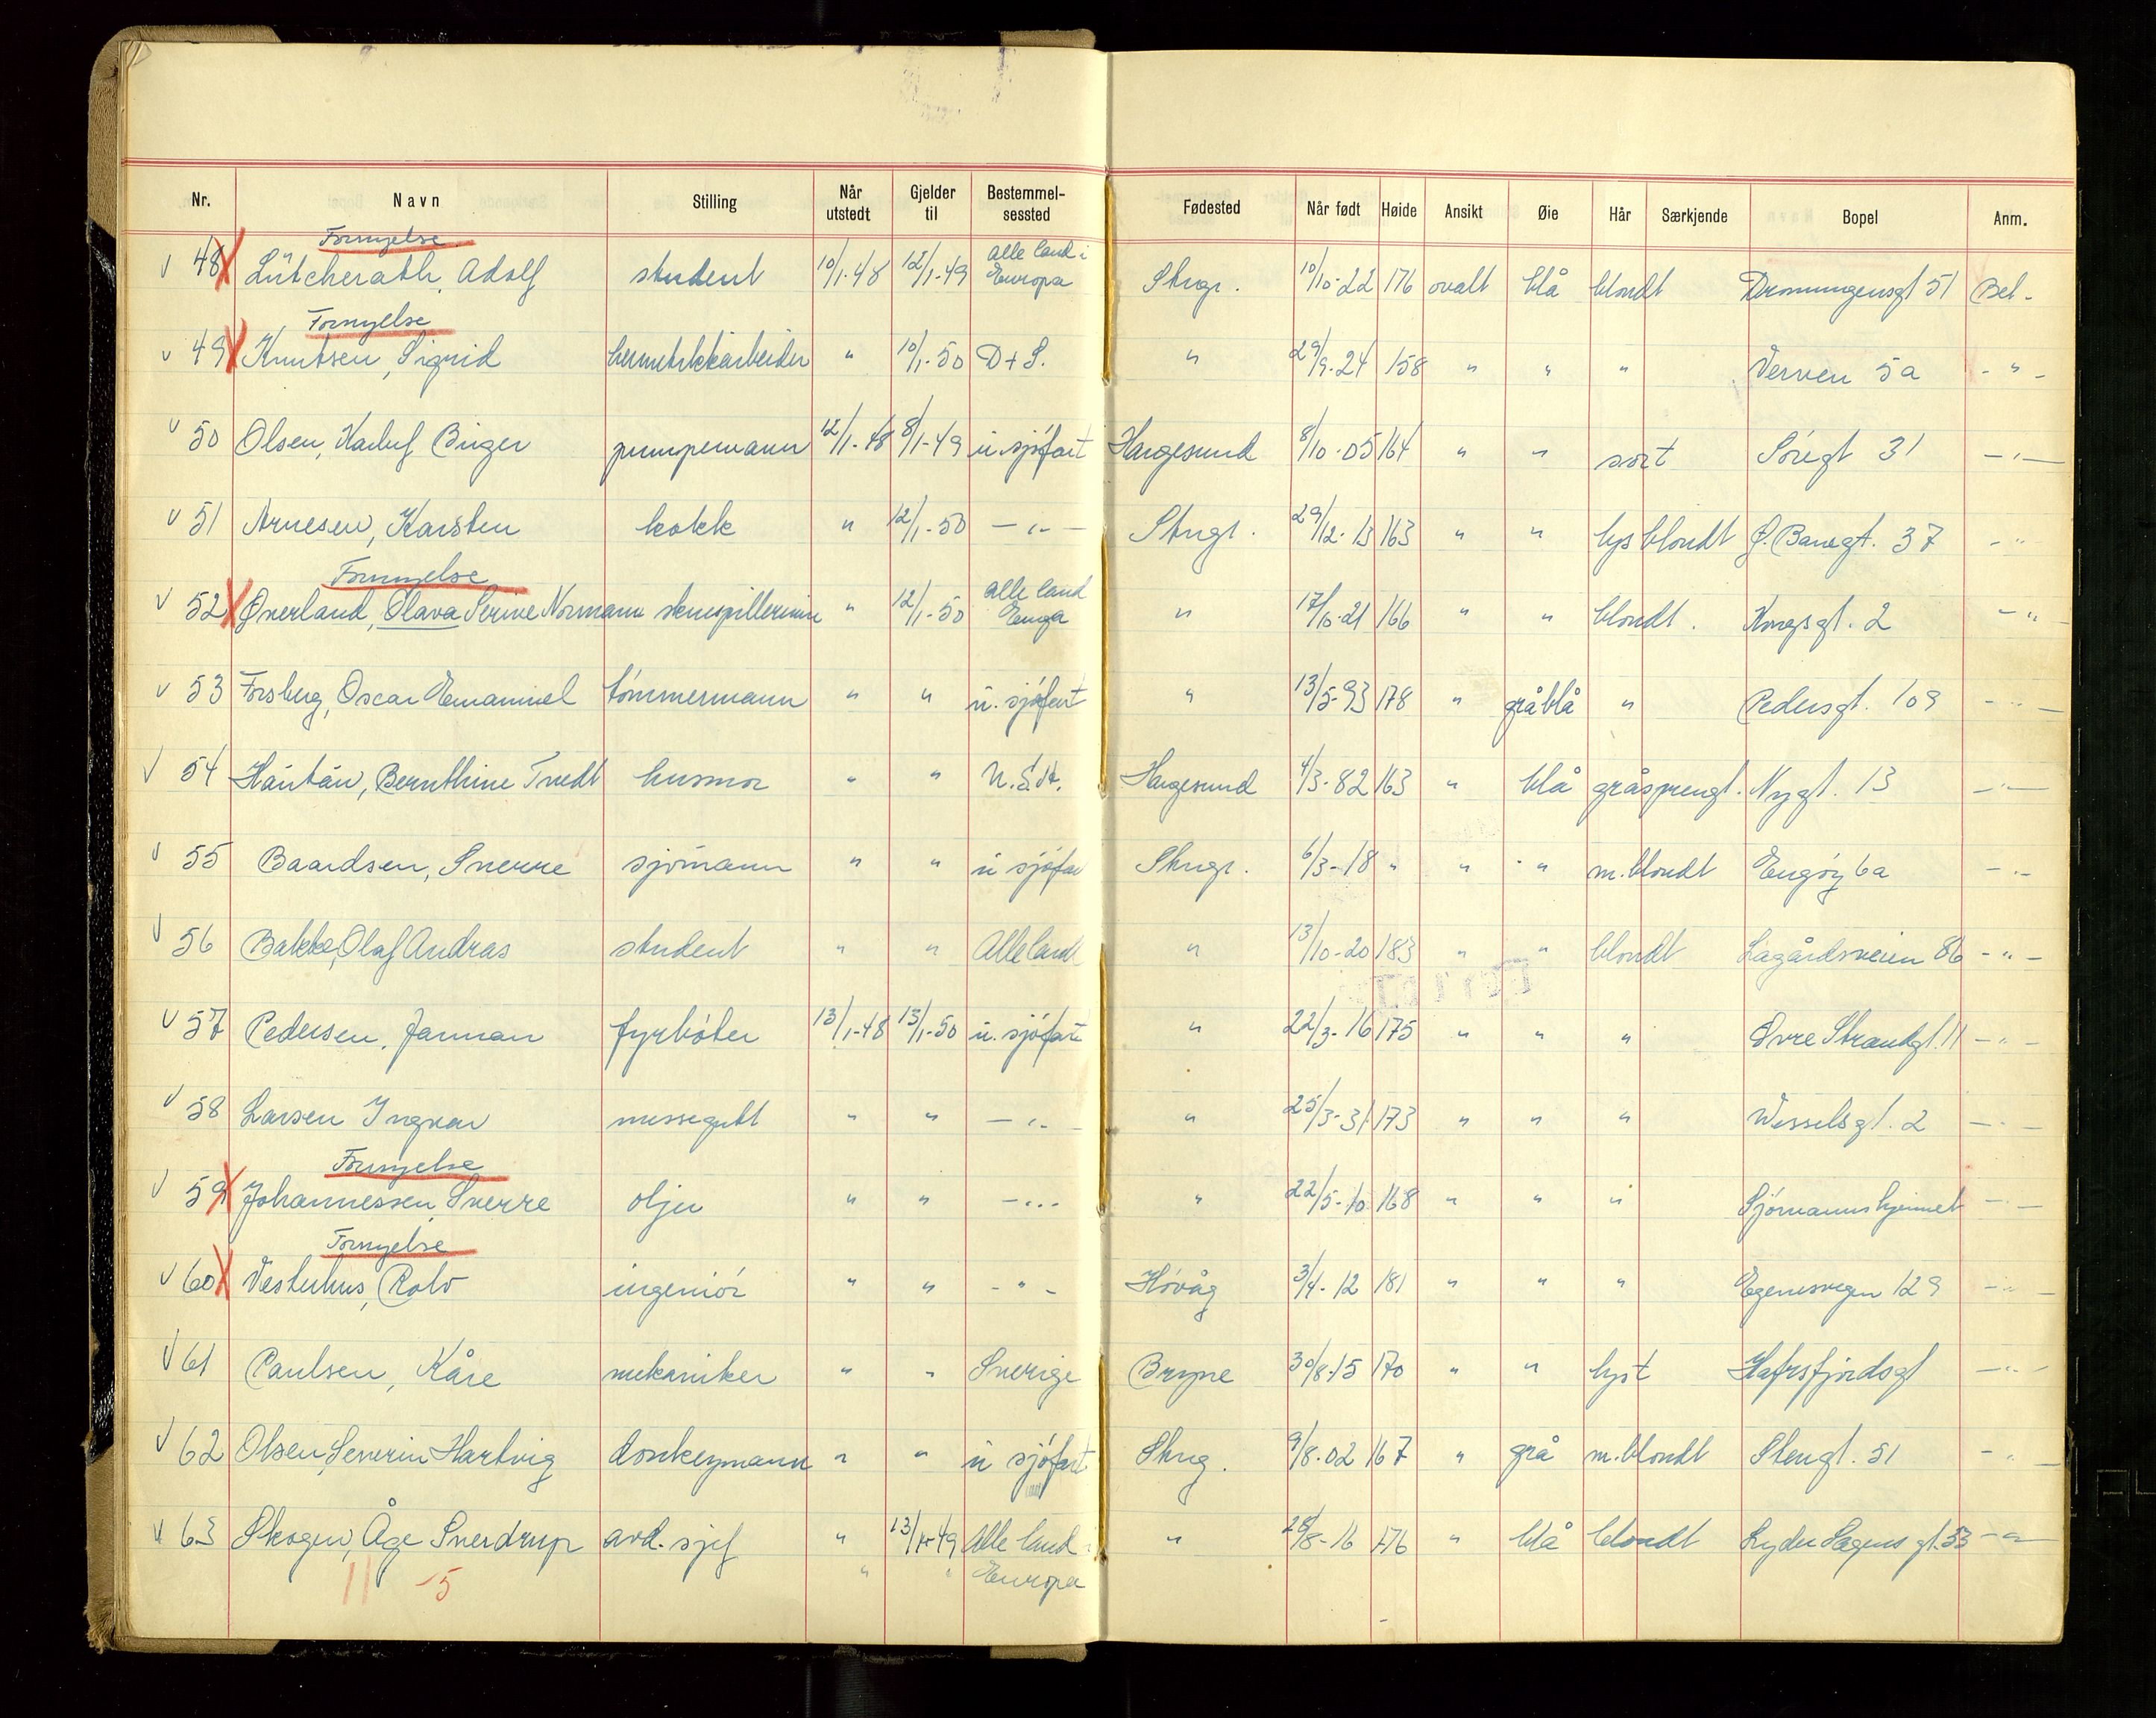 Nr. Navn Stilling Når utstedt Gjelder til Bestemmel-sessted Fødested Når født Høide Ansikt Øie Hår Særkjende Bopel Anm.
Fornyelse
v 48 X Lütcherath, Adolf student 10/1-48 12/1-49 alle land i Europa Stvgr. 10/10-22 176 ovalt blå blondt Dronningensgt 51 Bet-
Fornyelse
v 49 X Knutsen, Sigrid hermetikkarbeider " 10/1-50 D+S. " 29/9-24 158 " " " Verven 5a - " -
v 50 Olsen, Karluf Birger pumpemann 12/1-48 8/1-49 u sjøfart Haugesund 8/10-05 164 " " sort Søregt 31 - " -
v 51 Arnesen, Karsten kokk " 12/1-50 - " - Stvgr. 29/12-13 163 " " lys blondt Ø. Banegt. 37 - "
Fornyelse
v 52 X Øverland, Olava Serine Normann skuespillerinne " 12/1-50 alle land " 17/10-21 166 " " blondt. Kongsgt. 2 - "
v 53 Forsberg, Oscar Emanuel tømmermann " " u. sjøfart " 13/5-93 178 " gråblå " Pedersgt. 109 - " -
v 54 Bernthine husmor " " Haugesund 4/3-82 163 " blå gråsprengt. Nygt. 13 - " -
v 55 Baardsen, Sverre sjømann " " u sjøfar Stvgr. 6/3-18 " " " m. blondt Engøy 6a - " -
v 56 Bakke, Olaf Andras student " " Alle land " 13/10-20 183 " " blondt Lagårdsveien 86 - " -
v 57 Pedersen, Jarman fyrbøter 13/1-48 13/1-50 u. sjøfart " 22/3-16 175 " " " Øvre Strandgt. 11 - " -
v 58 Larsen Ingvar messegutt " " - " - " 25/3-31 173 " " " Wesselsgt. 2 - " -
Fornyelse
v 59 X Johannessen, Sverre oljer " " - " - " 22/5-10 168 " " " Sjømannshjemmet - " -
Fornyelse
v 60 X Vesterhus, Rolv ingeniør " " - " - Høvåg 3/4-12 181 " " " Egenesvegen 129 - " -
v 61 Paulsen, Kåre mekaniker " " Sverige Bryne 30/8-15 170 " " lyst Hafrsfjordsgt - " -
v 62 Olsen, Severin Hartvig donkeymann " " u sjøfart Stvg. 9/8-02 167 " grå m. blondt Stengt. 51 - " -
v 63 Skogen, Åge Sverdrup avd. sjef " 13/1-49 Alle land i " 28/8-16 176 " blå blondt Lyder Sagens gt. 33 - " -
11 -5 " " Europa